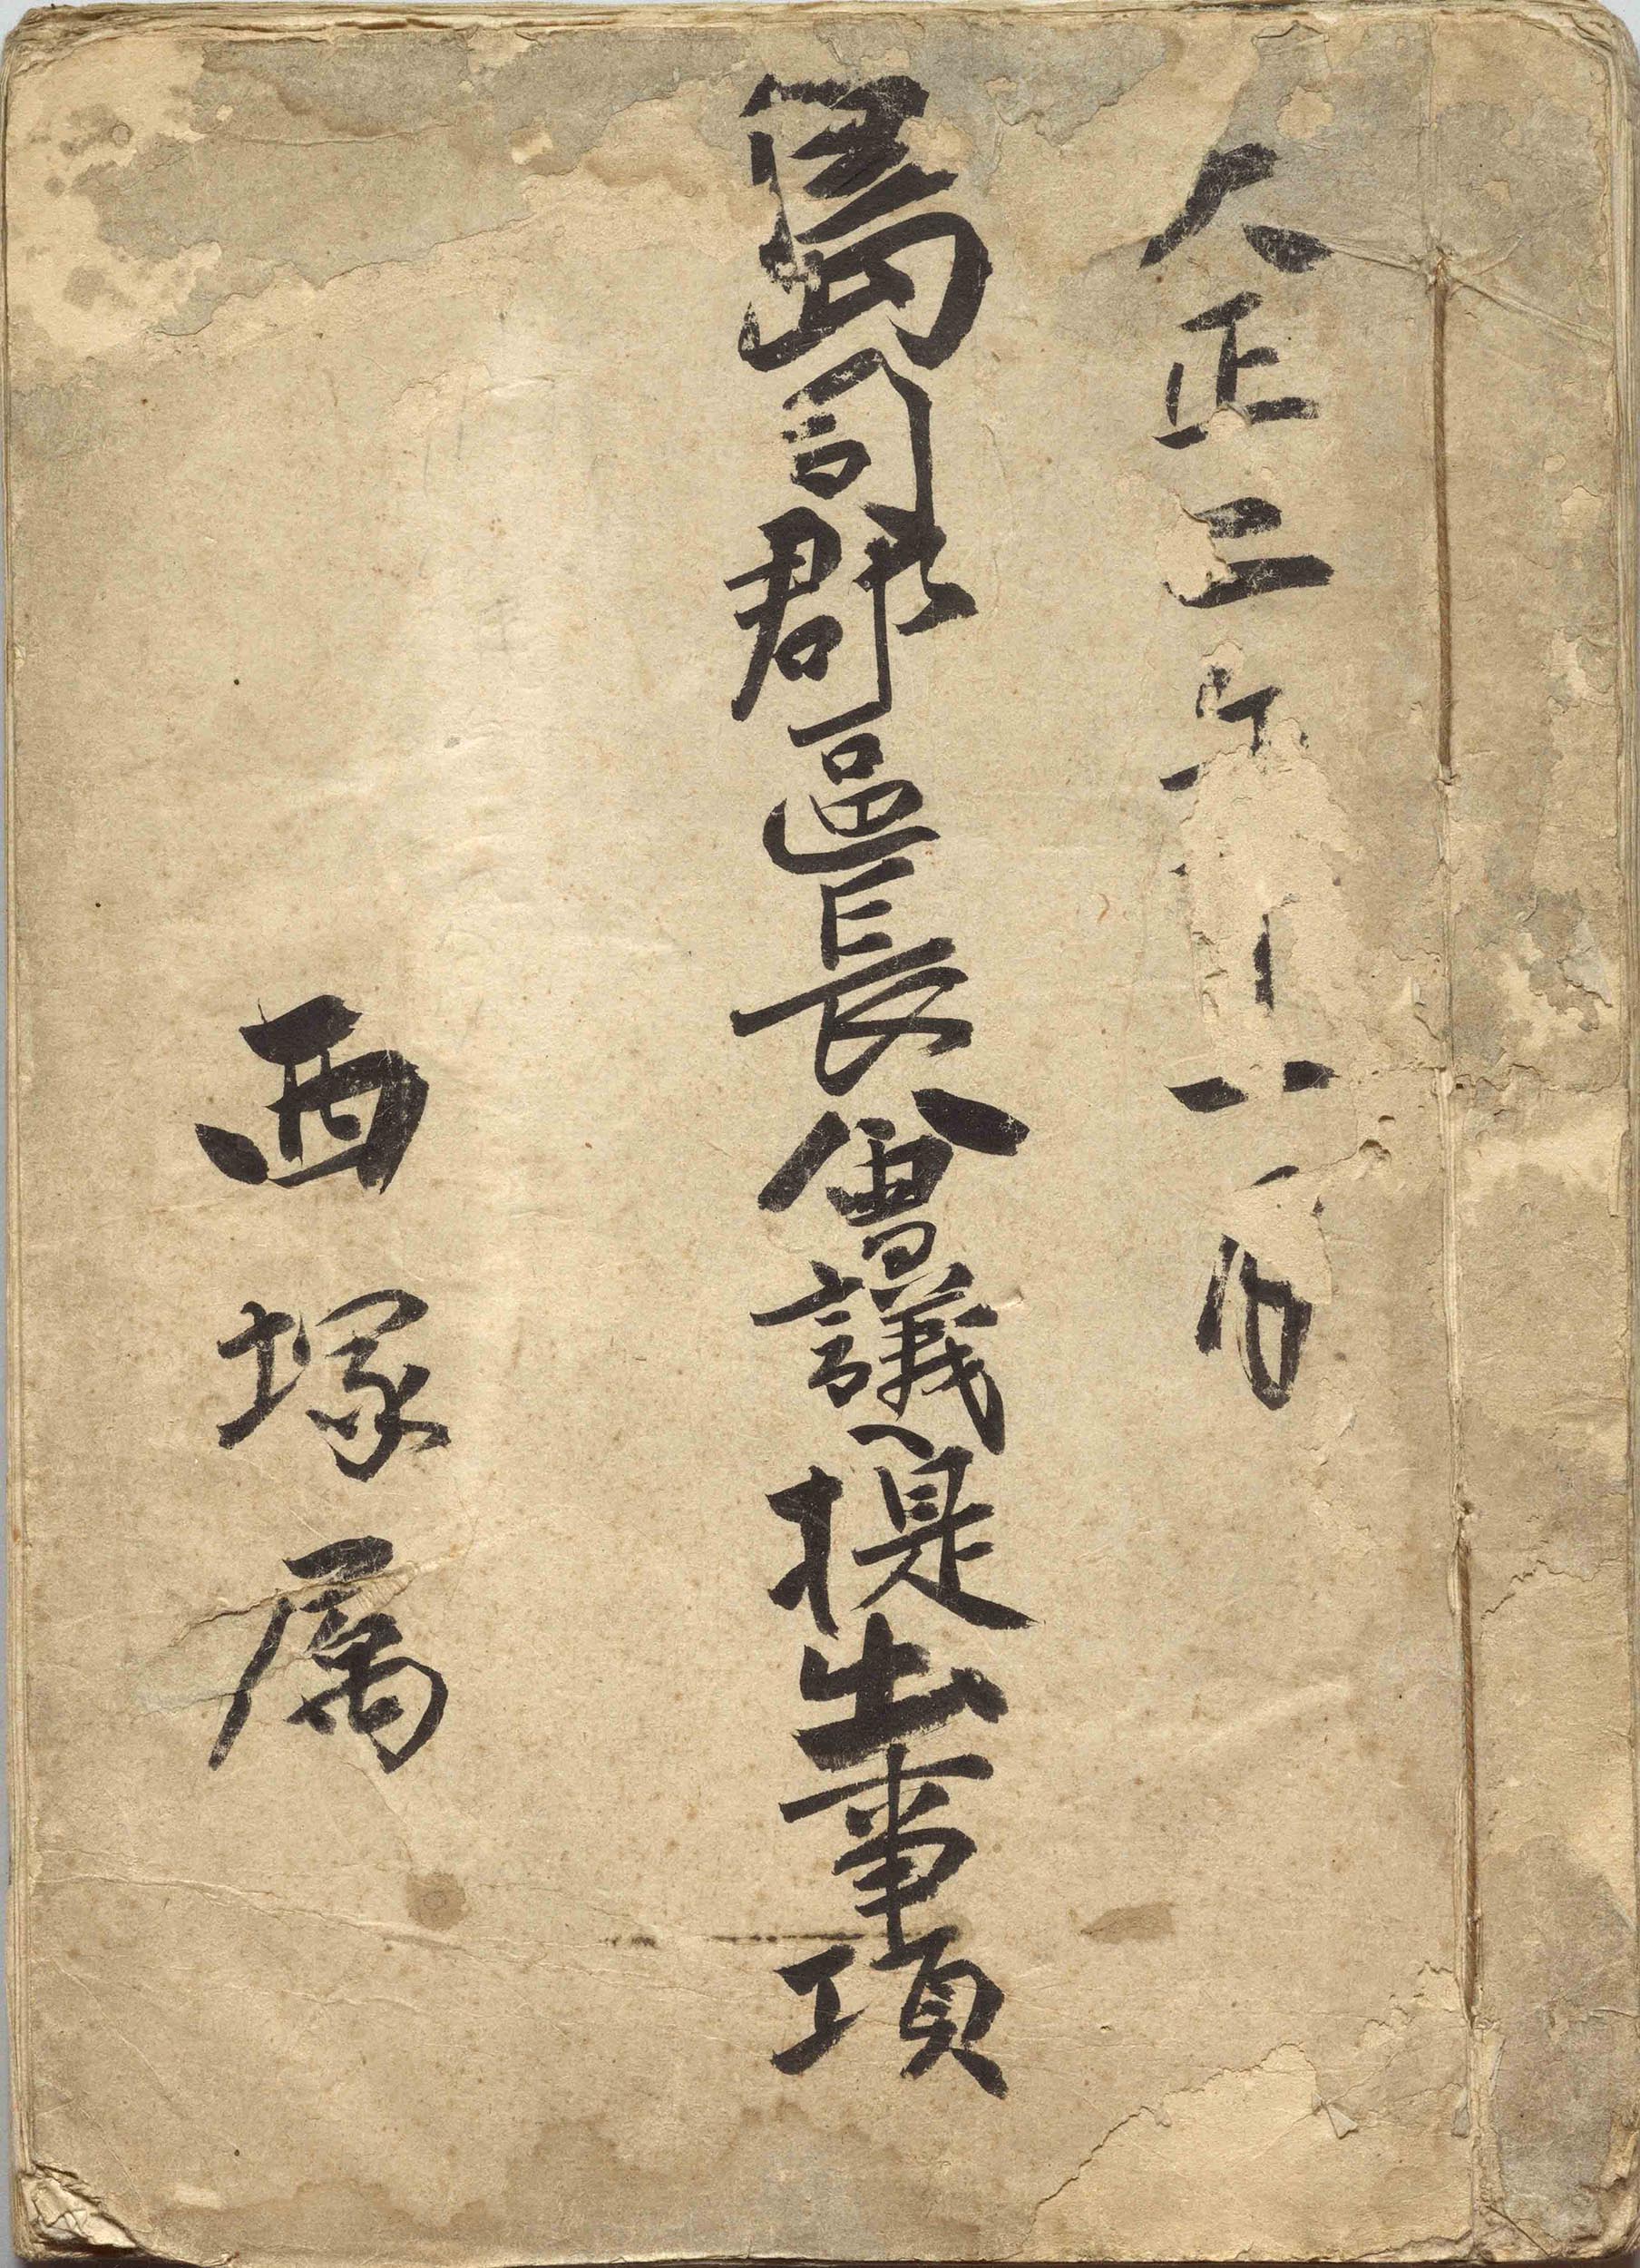 大正三年十一月
島司郡區長會議ヘ提出事項
西塚属